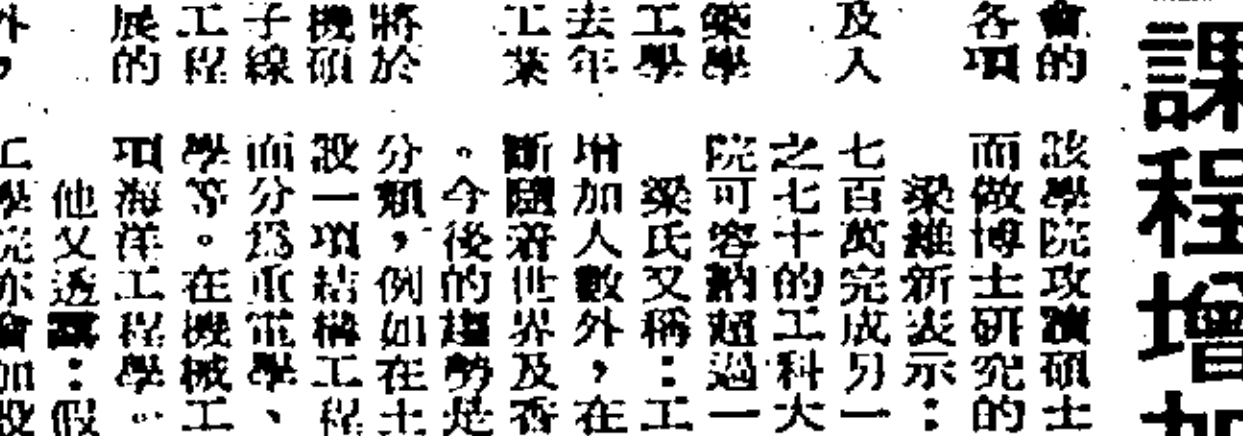 課程增加
會的
各項
及入
築學
工學
去年
工業
將於
機碩
子線
工程
展的
外，
該學院攻讀碩士
而做博士研究的
梁維新表示：
七百萬完成另一
之七十的工科大
院可容納超過一
梁氏又稱：工
增加人數外，在
斷隨著世界及香
。今後的趨勢是
分類，例如在土
設一項結構工程
而分為重電學、
學等。在機械工
項海洋工程學。
他又透露：假
工學院亦會加設